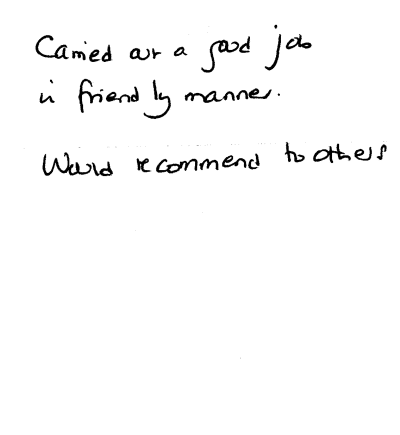 Carried out a good job
in friendly manner.
Would recommend to others